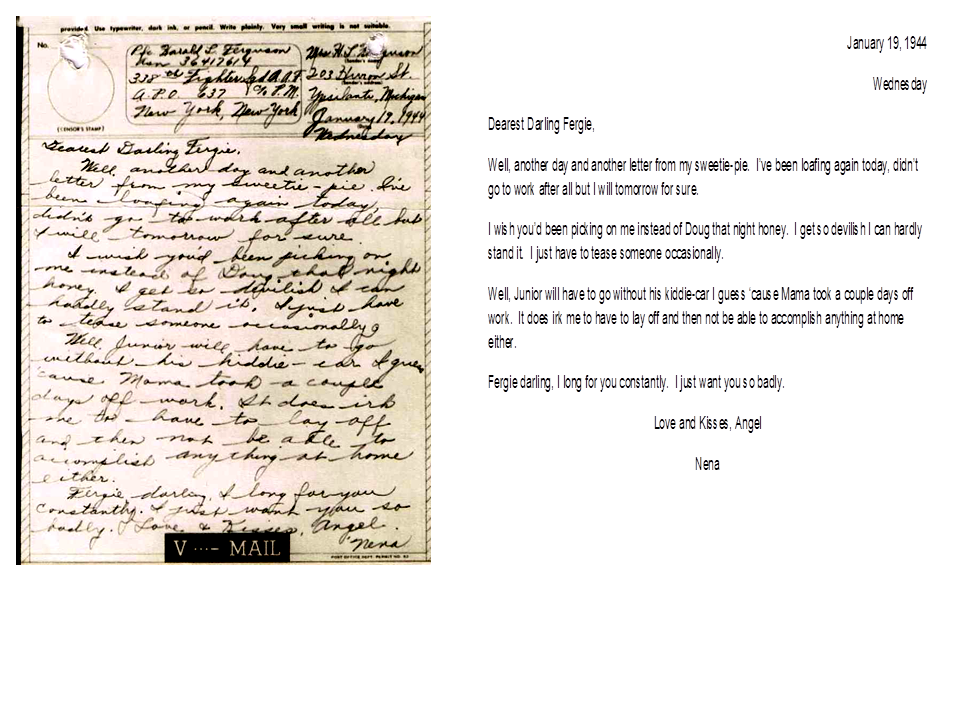 provided. Use typewriter, dark ink, or pencil. Write plainly. Very small writing is not suitable.
No.
(CENSOR'S STAMP)
Pfc Harold L. Ferguson
Asn 36417614
338th Fighter Sqd A.A.F.
A.P.O. 637 c/o P.M.
New York, New York
Mrs H. L. Ferguson
(Sender's name)
203 Huron St.
(Sender's address)
Ypsilanti, Michigan
January 19, 1944
(Date)
Wednesday
Dearest Darling Fergie,
Well, another day and another
letter from my sweetie-pie. I've
been loafing again today,
didn't go to work after all but
I will tomorrow for sure.
I wish you'd been picking on
me instead of Doug that night
honey. I get so devilish I can
hardly stand it. I just have
to tease someone occasionally
Well, Junior will have to go
without his kiddie-car I guess
'cause Mama took a couple
days off work. It does irk
me to have to lay off
and then not be able to
accomplish anything at home
either.
Fergie darling, I long for you
constantly. I just want you so
badly. Love & Kisses, Angel.
Nena
V ···– MAIL
POST OFFICE DEPT. PERMIT NO.
January 19, 1944
Wednesday
Dearest Darling Fergie,
Well, another day and another letter from my sweetie-pie. I've been loafing again today, didn't
go to work after all but I will tomorrow for sure.
I wish you'd been picking on me instead of Doug that night honey. I get so devilish I can hardly
stand it. I just have to tease someone occasionally.
Well, Junior will have to go without his kiddie-car I guess 'cause Mama took a couple days off
work. It does irk me to have to lay off and then not be able to accomplish anything at home
either.
Fergie darling, I long for you constantly. I just want you so badly.
Love and Kisses, Angel
Nena